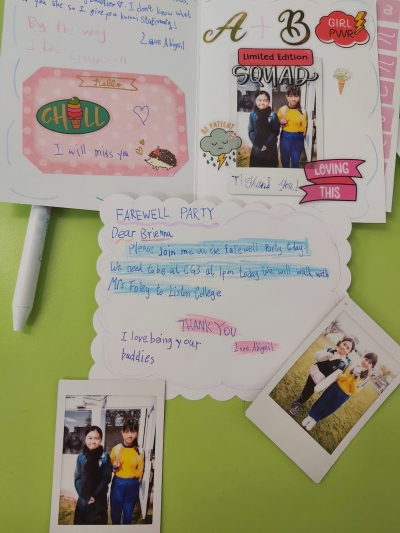 you like so I give you kuromi stationary!
Love Abigail
By the way
I
hello
CHILL
I will miss you
A + B
GIRL
PWR
Limited Edition
SQUAD
BE PATIENT
Thank You!
LOVING
THIS
FAREWELL PARTY
Dear Brienna
Please Join me in the farewell Party today
We need to be at CG3 at 1pm today We will walk with
Mrs Foley to Liston College
THANK YOU
I love being your
buddies
Love Abigail